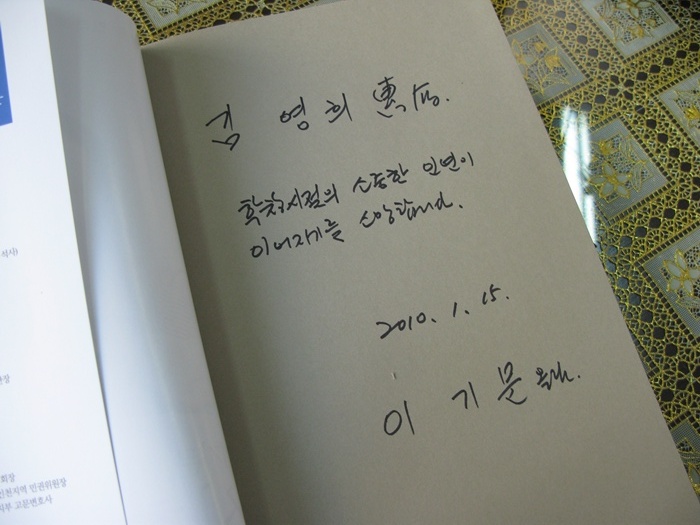 김 영 희 惠存.
학창시절의 소중한 인연이
이어지기를 소망합니다.
2010. 1. 15.
이 기 문 올림.
석사)
장
회장
인천지역 인권위원장
부 고문변호사